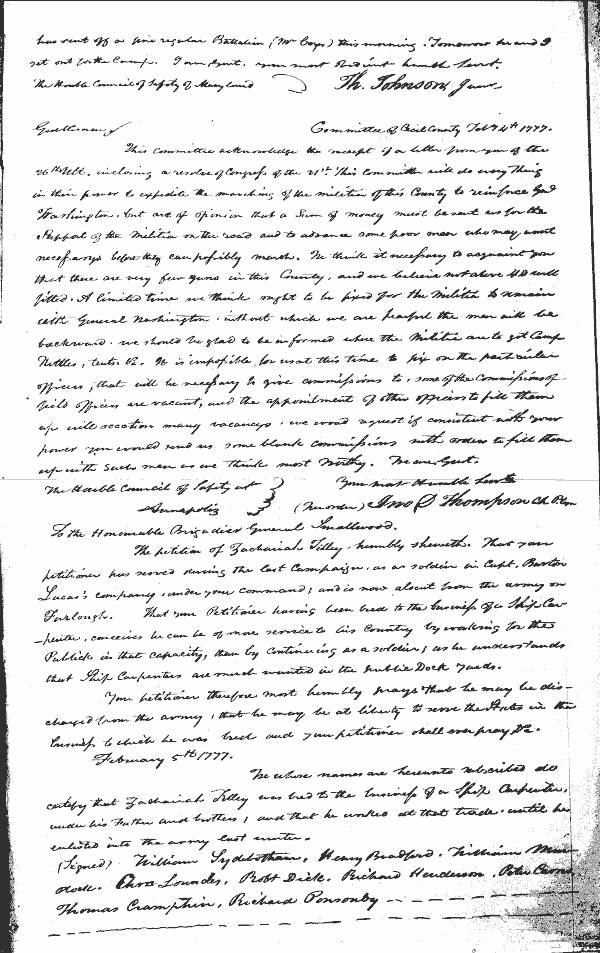 has sent off a fine regular Battalion (Mr Coxes) this morning. Tomorrow he and I
set out for the Camp. I am Gent. your most Obedient humble Servt.
The Honble Council of Safety of Maryland Th. Johnson Junr
Gentlemen Committee of Cecil County Feby 4th 1777.
This Committee acknowledge the receipt of a letter from you of the
26th Ult. inclosing a resolve of Congress of the 21st This Committee will do every thing
in their power to expedite the marching of the militia of this County to reinforce Genl
Washington, but are of opinion that a Sum of money must be sent us for the
Support of the Militia on the road and to advance some poor men who may want
necessarys before they can possibly march. We think it necessary to acquaint you
that there are very few guns in this County, and we believe not above 40 well
fitted. A limited time we think ought to be fixed for the Militia to remain
with General Washington, without which we are fearful the men will be
backward. we should be glad to be informed where the Militia are to get Camp
Kettles, tents &c. It is impossible for us at this time to fix on the particular
officers, that will be necessary to give commissions to, some of the Commissions of
field officers are vacant, and the appointment of other officers to fill them
up will occation many vacancys. we woud request if consistent with your
power you would send us some blank Commissions with orders to fill them
up with such men as we think most Worthy. We are Gent.
The Honble Council of Safety at Your most Humble Servts
Annapolis (Pr order) Jno D Thompson
To the Honourable Brigadier General Smallwood.
The petition of Zachariah Tilley humbly sheweth. That your
petitioner has served during the last Campaign, as a soldier in Capt. Barton
Lucas's company, under your command; and is now absent from the army on
Furlough. That your Petitioner having been bred to the business of a Ship Car
-penter, conceives he can be of more service to his Country by working for the
Publick in that capacity, than by Continuing as a soldier; as he understands
that Ship Carpenters are much wanted in the public Dock Yards.
Your petitioner therefore most humbly prays that he may be dis-
charged from the army, that he may be at liberty to serve the States in the
business to which he was bred and your petitioner shall ever pray &c.
February 5th 1777.
We whose names are hereunto subscribed do
certify that Zachariah Tilley was bred to the business of a Ship Carpenter,
under his Father and brothers; and that he worked at that trade until he
enlisted into the army last winter.
(Signed) William Sydebotham, Henry Bradford, William Mur
dock. Chrs Lowndes, Robt Dick. Richard Henderson, Peter
Thomas Cramphin, Richard Ponsonby